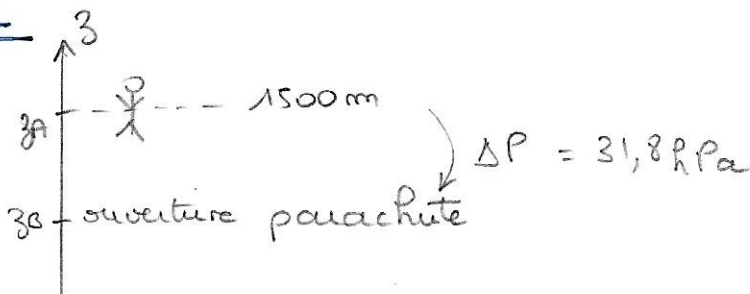 z
zA
1500 m
ΔP = 31,8 hPa
zB ouverture parachute